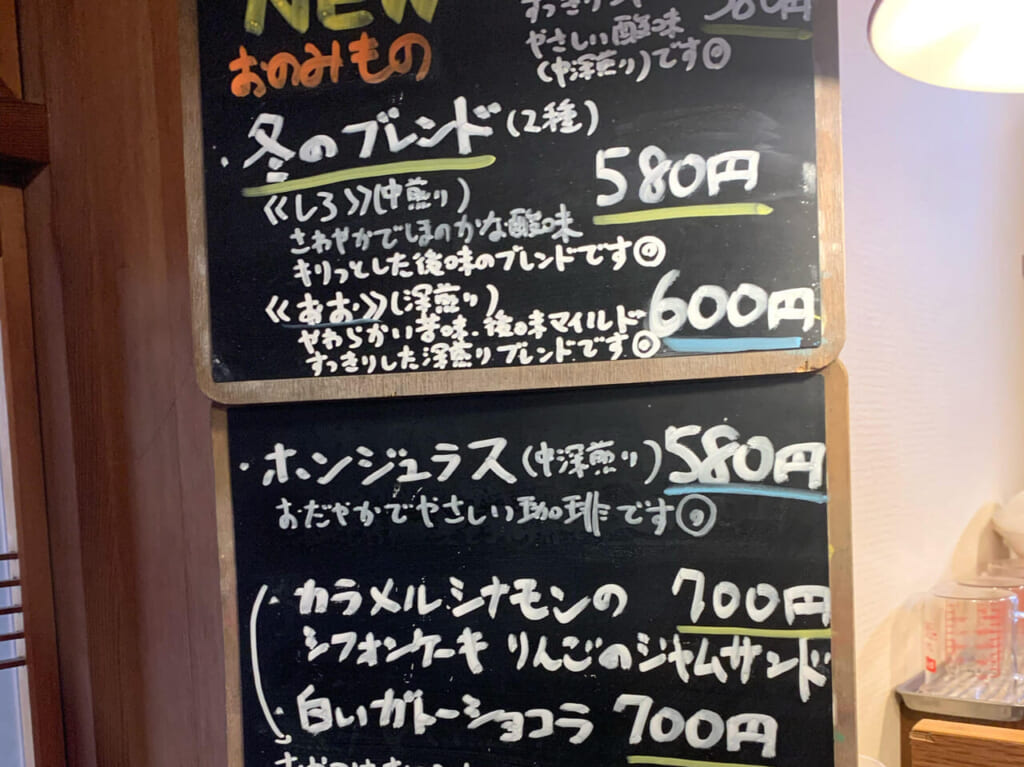 NEW
おのみもの
580円
やさしい酸味
(中深煎り)です
・冬のブレンド(2種)
580円
《しろ》(中煎り)
さわやかでほのかな酸味
キリっとした後味のブレンドです
《あお》(深煎り)
600円
やわらかい苦味、後味マイルド
すっきりした深煎りブレンドです
・ホンジュラス(中深煎り)580円
おだやかでやさしい珈琲です
・カラメルシナモンの 700円
シフォンケーキ りんごのジャムサンド
・白いガトーショコラ 700円